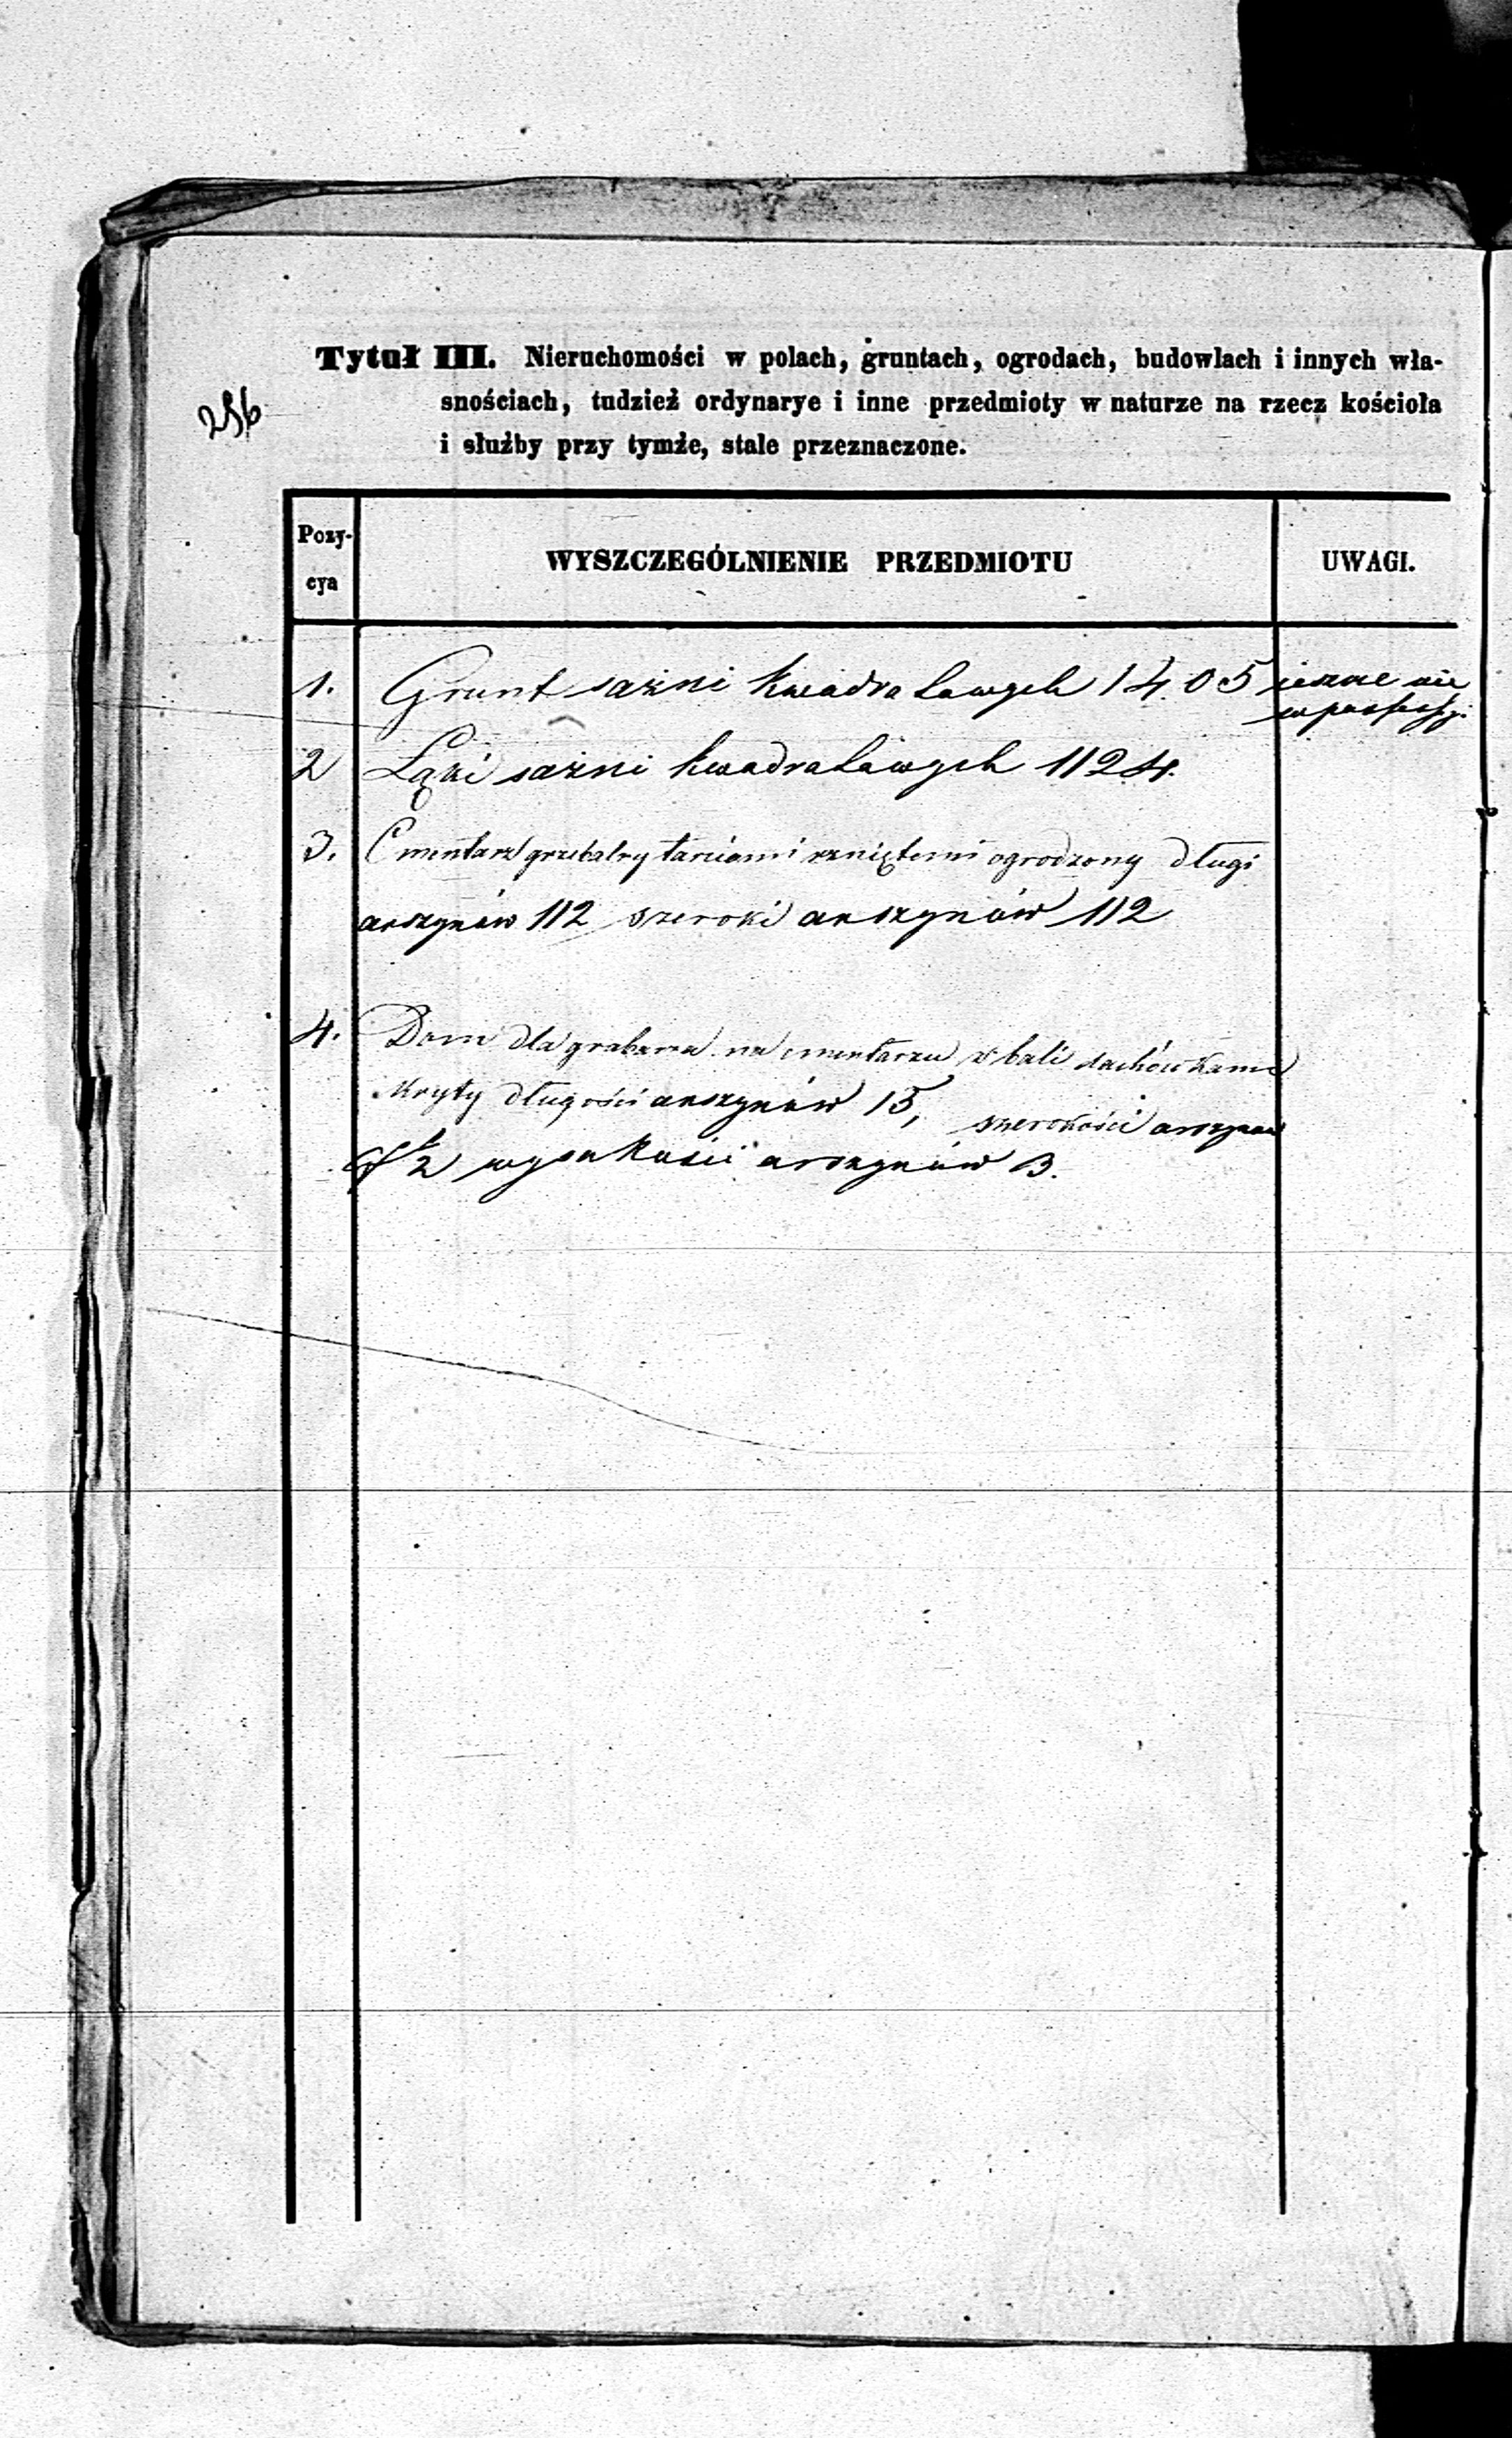 Tytuł III. Nieruchomości w polach, gruntach, ogrodach, budowlach i innych wła-
snościach, tudzież ordynarye i inne przedmioty w naturze na rzecz kościoła
i służby przy tymże, stale przeznaczone.
256
Pozy-
cya
WYSZCZEGÓLNIENIE PRZEDMIOTU
UWAGI.
1. Grunt sażni kwadratowych 1405 ieszcze nie
w possessyi
2 Łąki sażni kwadratowych 1124.
3. Cmentarz grzebalny tarciami rzniętemi ogrodzony długi
arszynów 112 szeroki arszynów 112
4. Dom dla grabarza na cmentarzu z bali dachówkami
kryty długości arszynów 15, szerokości arszynów
wysokości arszynów 3.